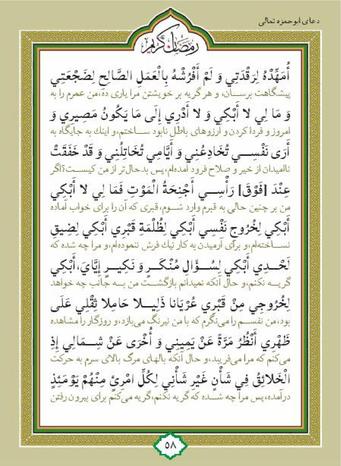 دعای ابوحمزه ثمالی
رمضان کریم
أُمَهِّدْهُ لِرَقْدَتِي وَ لَمْ أَفْرُشْهُ بِالْعَمَلِ الصَّالِحِ لِضَجْعَتِي
پیشگاهت برسان، و هر گریه بر خویشتن مرا یاری ده، من عمرم را به
وَ مَا لِي لا أَبْكِي وَ لا أَدْرِي إِلَى مَا يَكُونُ مَصِيرِي وَ
امروز و فردا کردن و آرزوهای باطل نابود ساختم، و اینک به جایگاه به
أَرَى نَفْسِي تُخَادِعُنِي وَ أَيَّامِي تُخَاتِلُنِي وَ قَدْ خَفَقَتْ
ناامیدان از خیر و صلاح فرود آمده‌ام، پس بدحال‌تر از من کیست؟ اگر
عِنْدَ [فَوْقَ] رَأْسِي أَجْنِحَةُ الْمَوْتِ فَمَا لِي لا أَبْكِي
من بر چنین حالی به قبرم وارد شوم، قبری که آن را برای خواب آماده
أَبْكِي لِخُرُوجِ نَفْسِي أَبْكِي لِظُلْمَةِ قَبْرِي أَبْكِي لِضِيقِ
نساخته‌ام، و برای آرمیدن به کار نیک فرش ننموده‌ام، و مرا چه شده که
لَحْدِي أَبْكِي لِسُؤَالِ مُنْكَرٍ وَ نَكِيرٍ إِيَّايَ، أَبْكِي
گریه نکنم، و حال آنکه نمیدانم بازگشت من به جانب چه خواهد
لِخُرُوجِي مِنْ قَبْرِي عُرْيَانا ذَلِيلا حَامِلا ثِقْلِي عَلَى
بود، من نفسم را می‌نگرم که با من نیرنگ می‌بازد، و روزگار را مشاهده
ظَهْرِي أَنْظُرُ مَرَّةً عَنْ يَمِينِي وَ أُخْرَى عَنْ شِمَالِي إِذِ
می‌کنم که مرا می‌فریبد، و حال آنکه بالهای مرگ بالای سرم به حرکت
الْخَلائِقُ فِي شَأْنٍ غَيْرِ شَأْنِي لِكُلِّ امْرِئٍ مِنْهُمْ يَوْمَئِذٍ
درآمده، پس مرا چه شده که گریه نکنم، گریه می‌کنم برای بیرون رفتن
۵۸